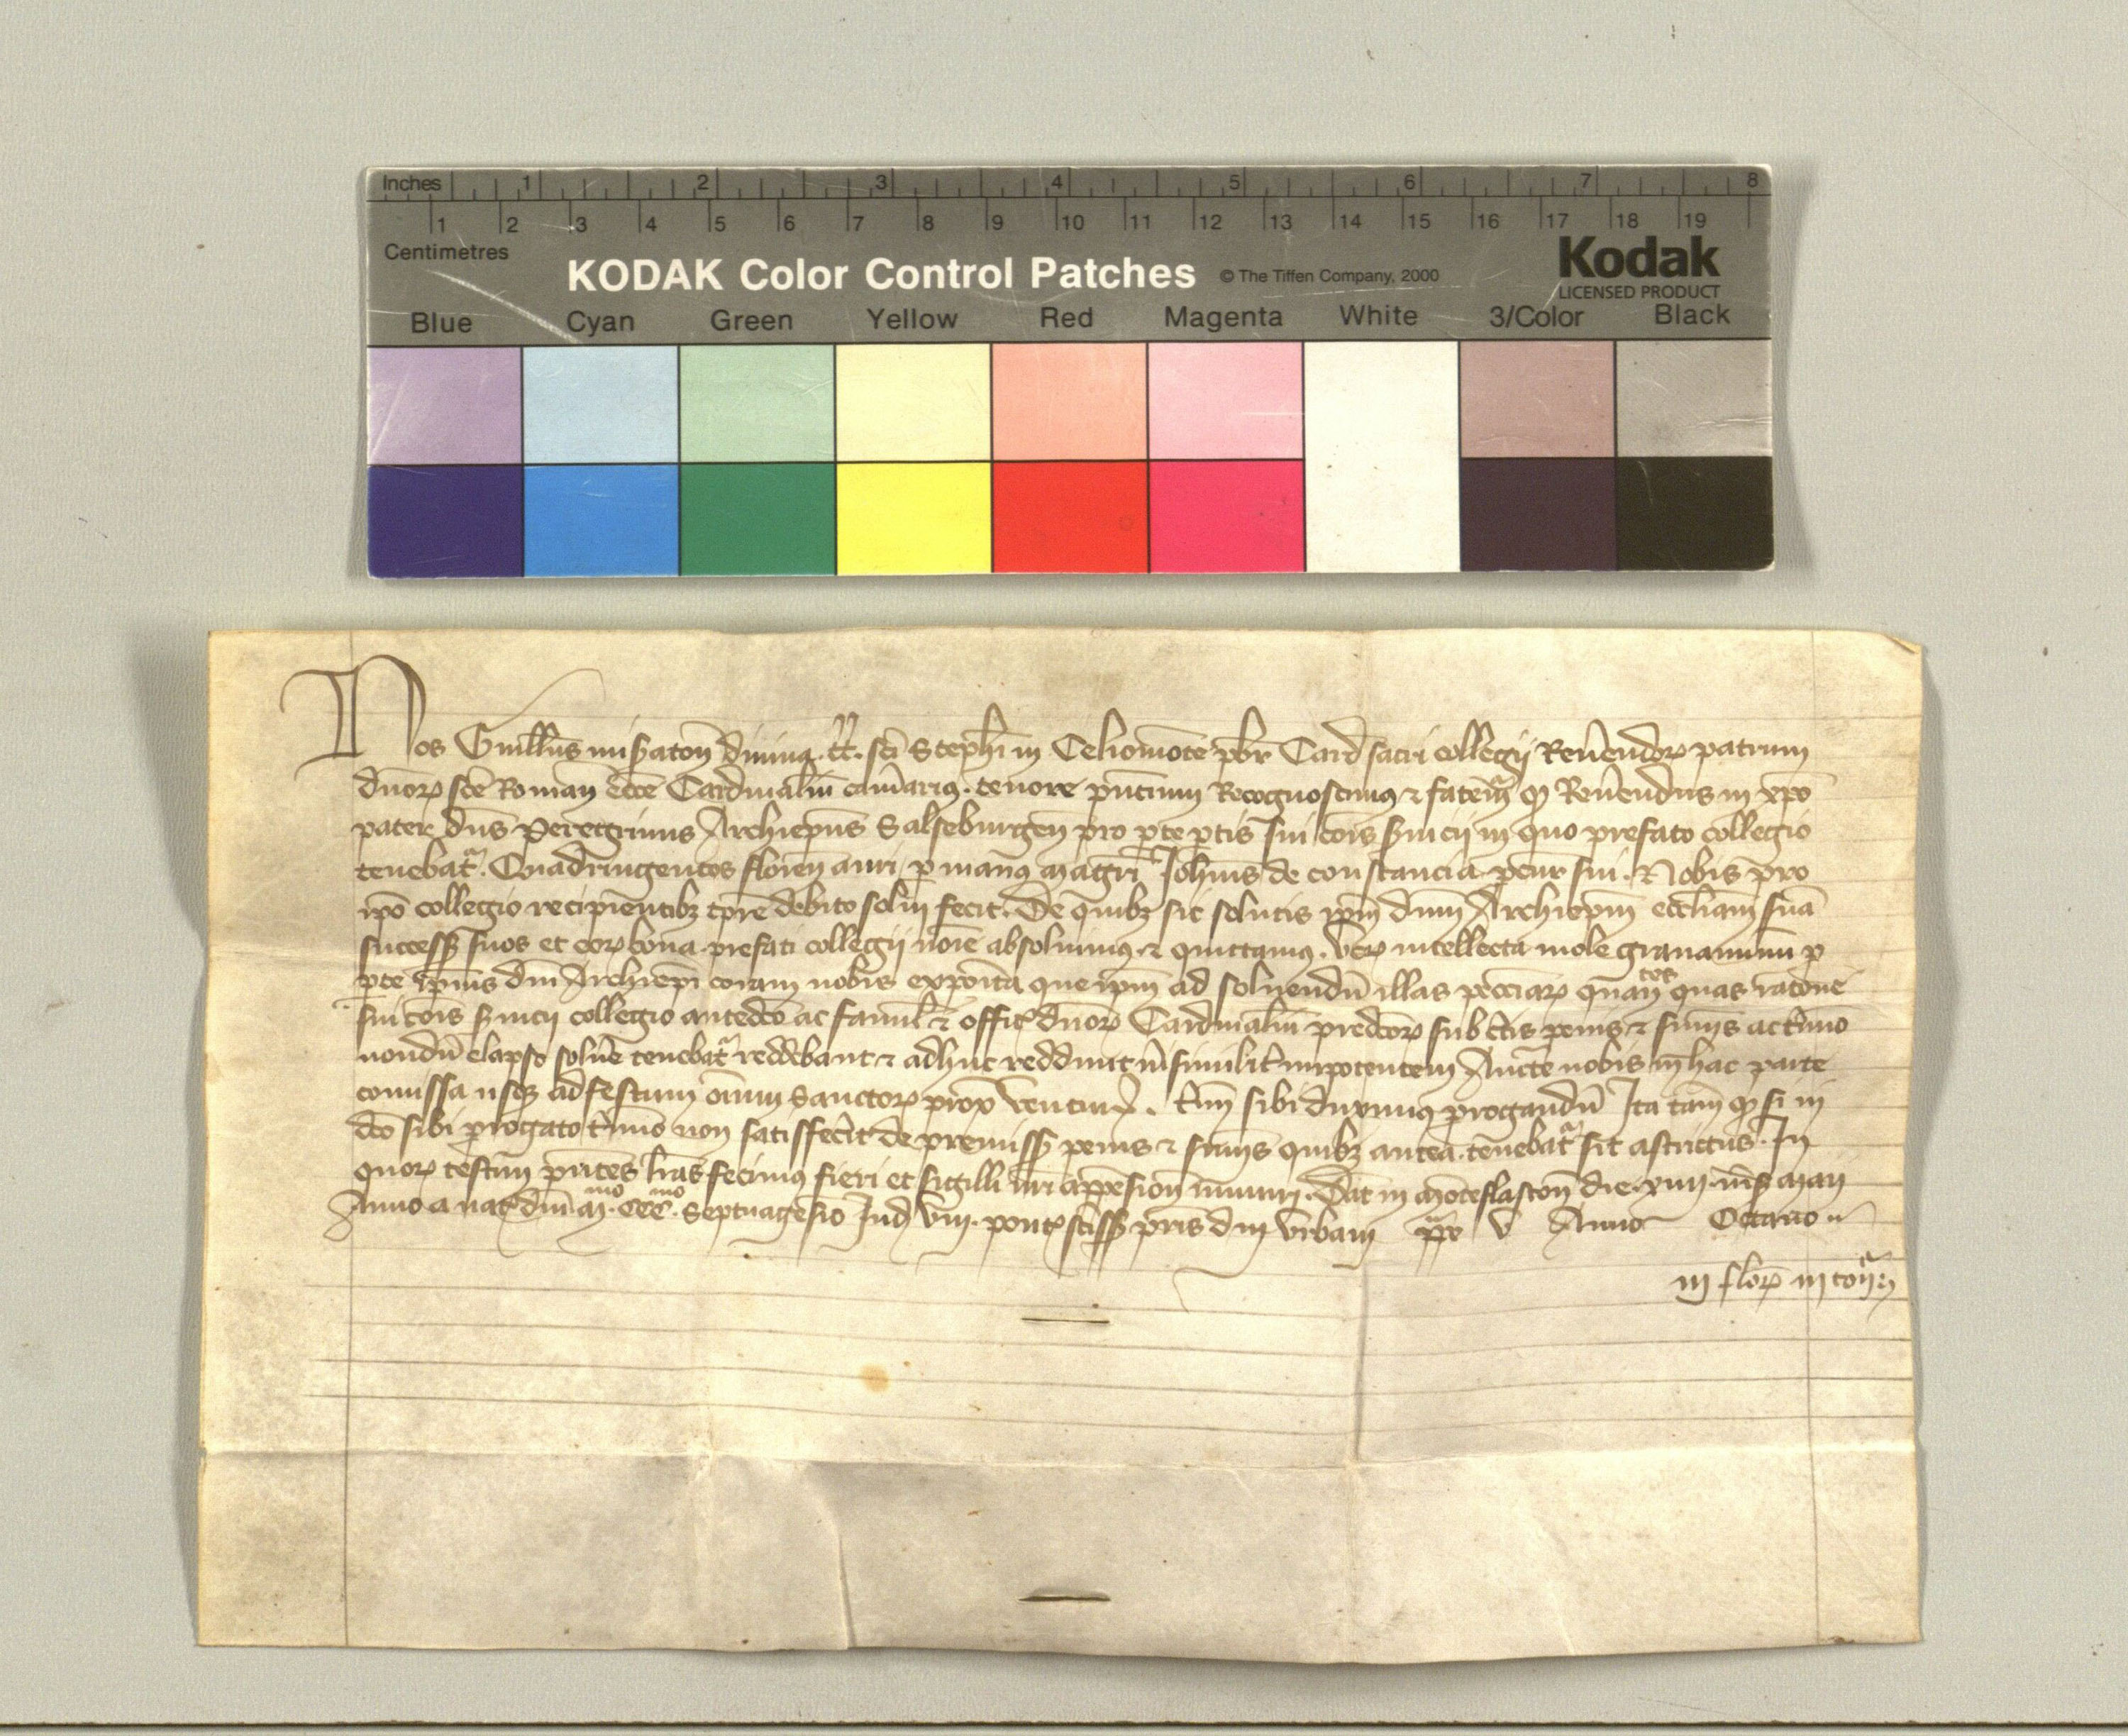 Inches 1 2 3 4 5 6 7 8
1 2 3 4 5 6 7 8 9 10 11 12 13 14 15 16 17 18 19
Centimetres
KODAK Color Control Patches © The Tiffen Company, 2000 Kodak
LICENSED PRODUCT
Blue Cyan Green Yellow Red Magenta White 3/Color Black
Nos Guills misaton diuina tt. sci Stephi in Celiomote pbr Card sacri collegii Reuendor patrum
dnor sce Roman ecce Cardinaliu camarius tenore pntium Recognoscimus & fatemr q Reuendus in xpo
pater dns Peregrinus Archiepus Salseburgen pro pte ptis sui cois seruicii in quo prefato collegio
tenebatr. Quadringentos floren auri p manus magri Johnis de constancia pcur sui. Nobis pro
ipo collegio recipientibz tpre debito solui fecit. De quibz sic solutis ipm dnm Archiepm eccliam sua
success suos et eor bona prefati collegii noie absoluimus & quittamus. Ver intellecta mole grauaminu p
pte ipius dni Archiepi coram nobis exposita que ipm ad soluendu illas pecciar quantes quas ratone
sui cois seruicii collegio antedco ac famil & offic dnor Cardinaliu predcor sub ctis penis & sniis ac tmino
nondu elapso solue tenebatr reddebant & adhuc reddunt similit impotentem Aucte nobis in hac parte
comissa usqz ad festum oium Sanctor prox ventur. tmn sibi duximus progandu Ita tam q si in
dco sibi progato tmino non satisffecit de premiss penis & sniis quibz antea tenebatr sit astrictus. In
quor testim pntes lras fecimus fieri et sigilli nri appesion muniri. Dat in Moteflascon die xiiii mes Maii
Anno a nat dni M. CCC. Septuagesio Ind viii. pont stiss pris dni Vrbani ppe V Anno Octauo